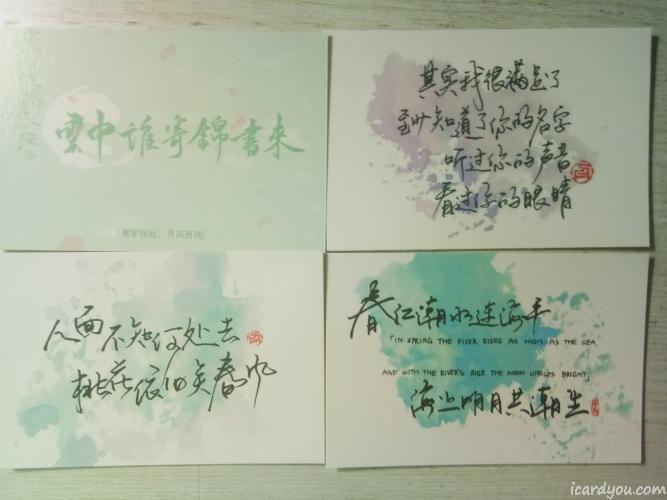 雲中誰寄錦書来
/雁字回时，月满西楼/
其实我很满足了
至少知道了你的名字
听过你的声音
看过你的眼睛
人面不知何处去
桃花依旧笑春风
春江潮水连海平
「IN SPRING THE RIVER RISES AS HIGH AS THE SEA,
AND WITH THE RIVER'S RISE THE MOON UPRISES BRIGHT」
海上明月共潮生
icardyou.com